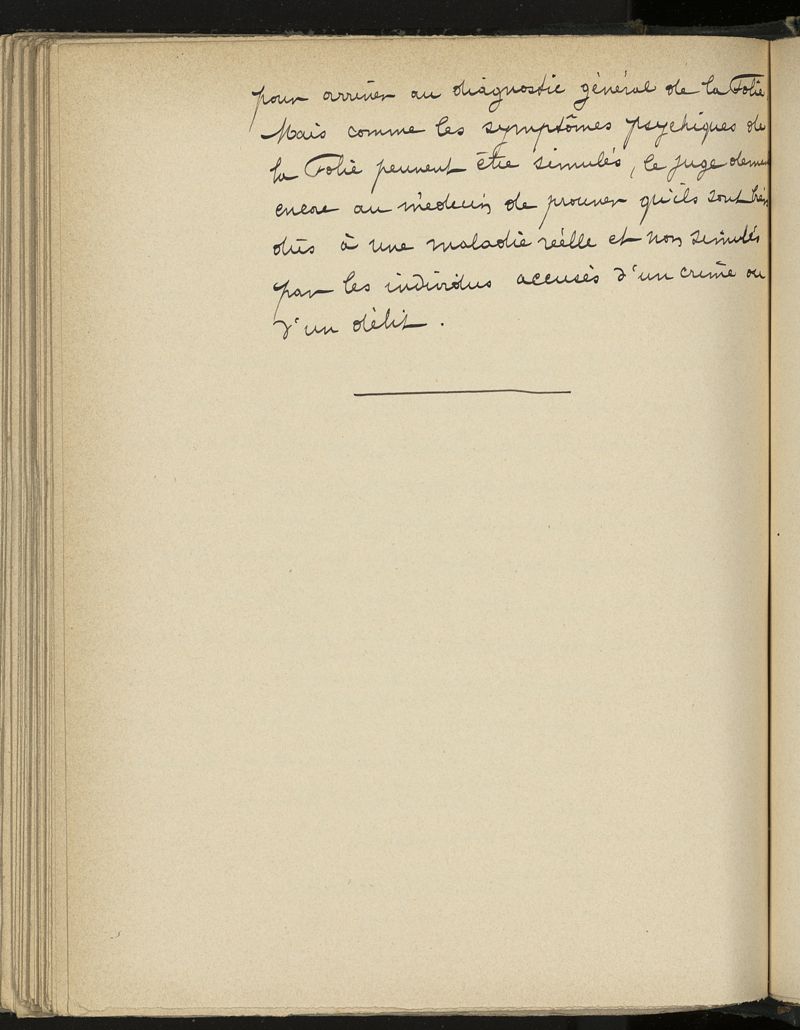 pour arriver au diagnostic général de la Folie
Mais comme les symptômes psychiques de
la Folie peuvent être simulés, le juge deman
encore au médecin de prouver qu'ils sont bien
dûs à une maladie réelle et non simulés
par les individus accusés d'un crime ou
d'un délit.